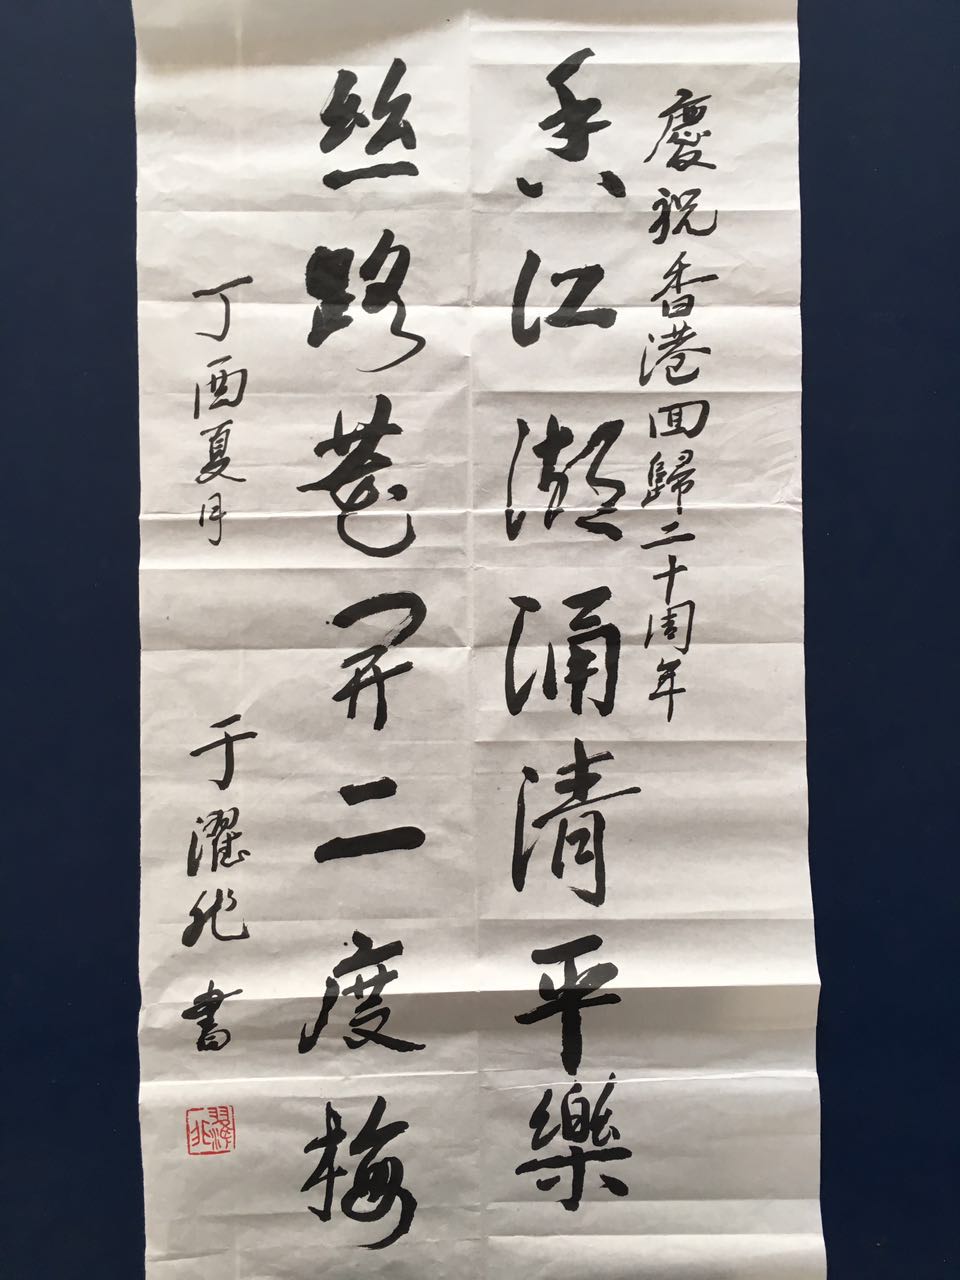 慶祝香港回歸二十周年
香江潮涌清平樂
絲路花開二度梅
丁酉夏月
于濯書